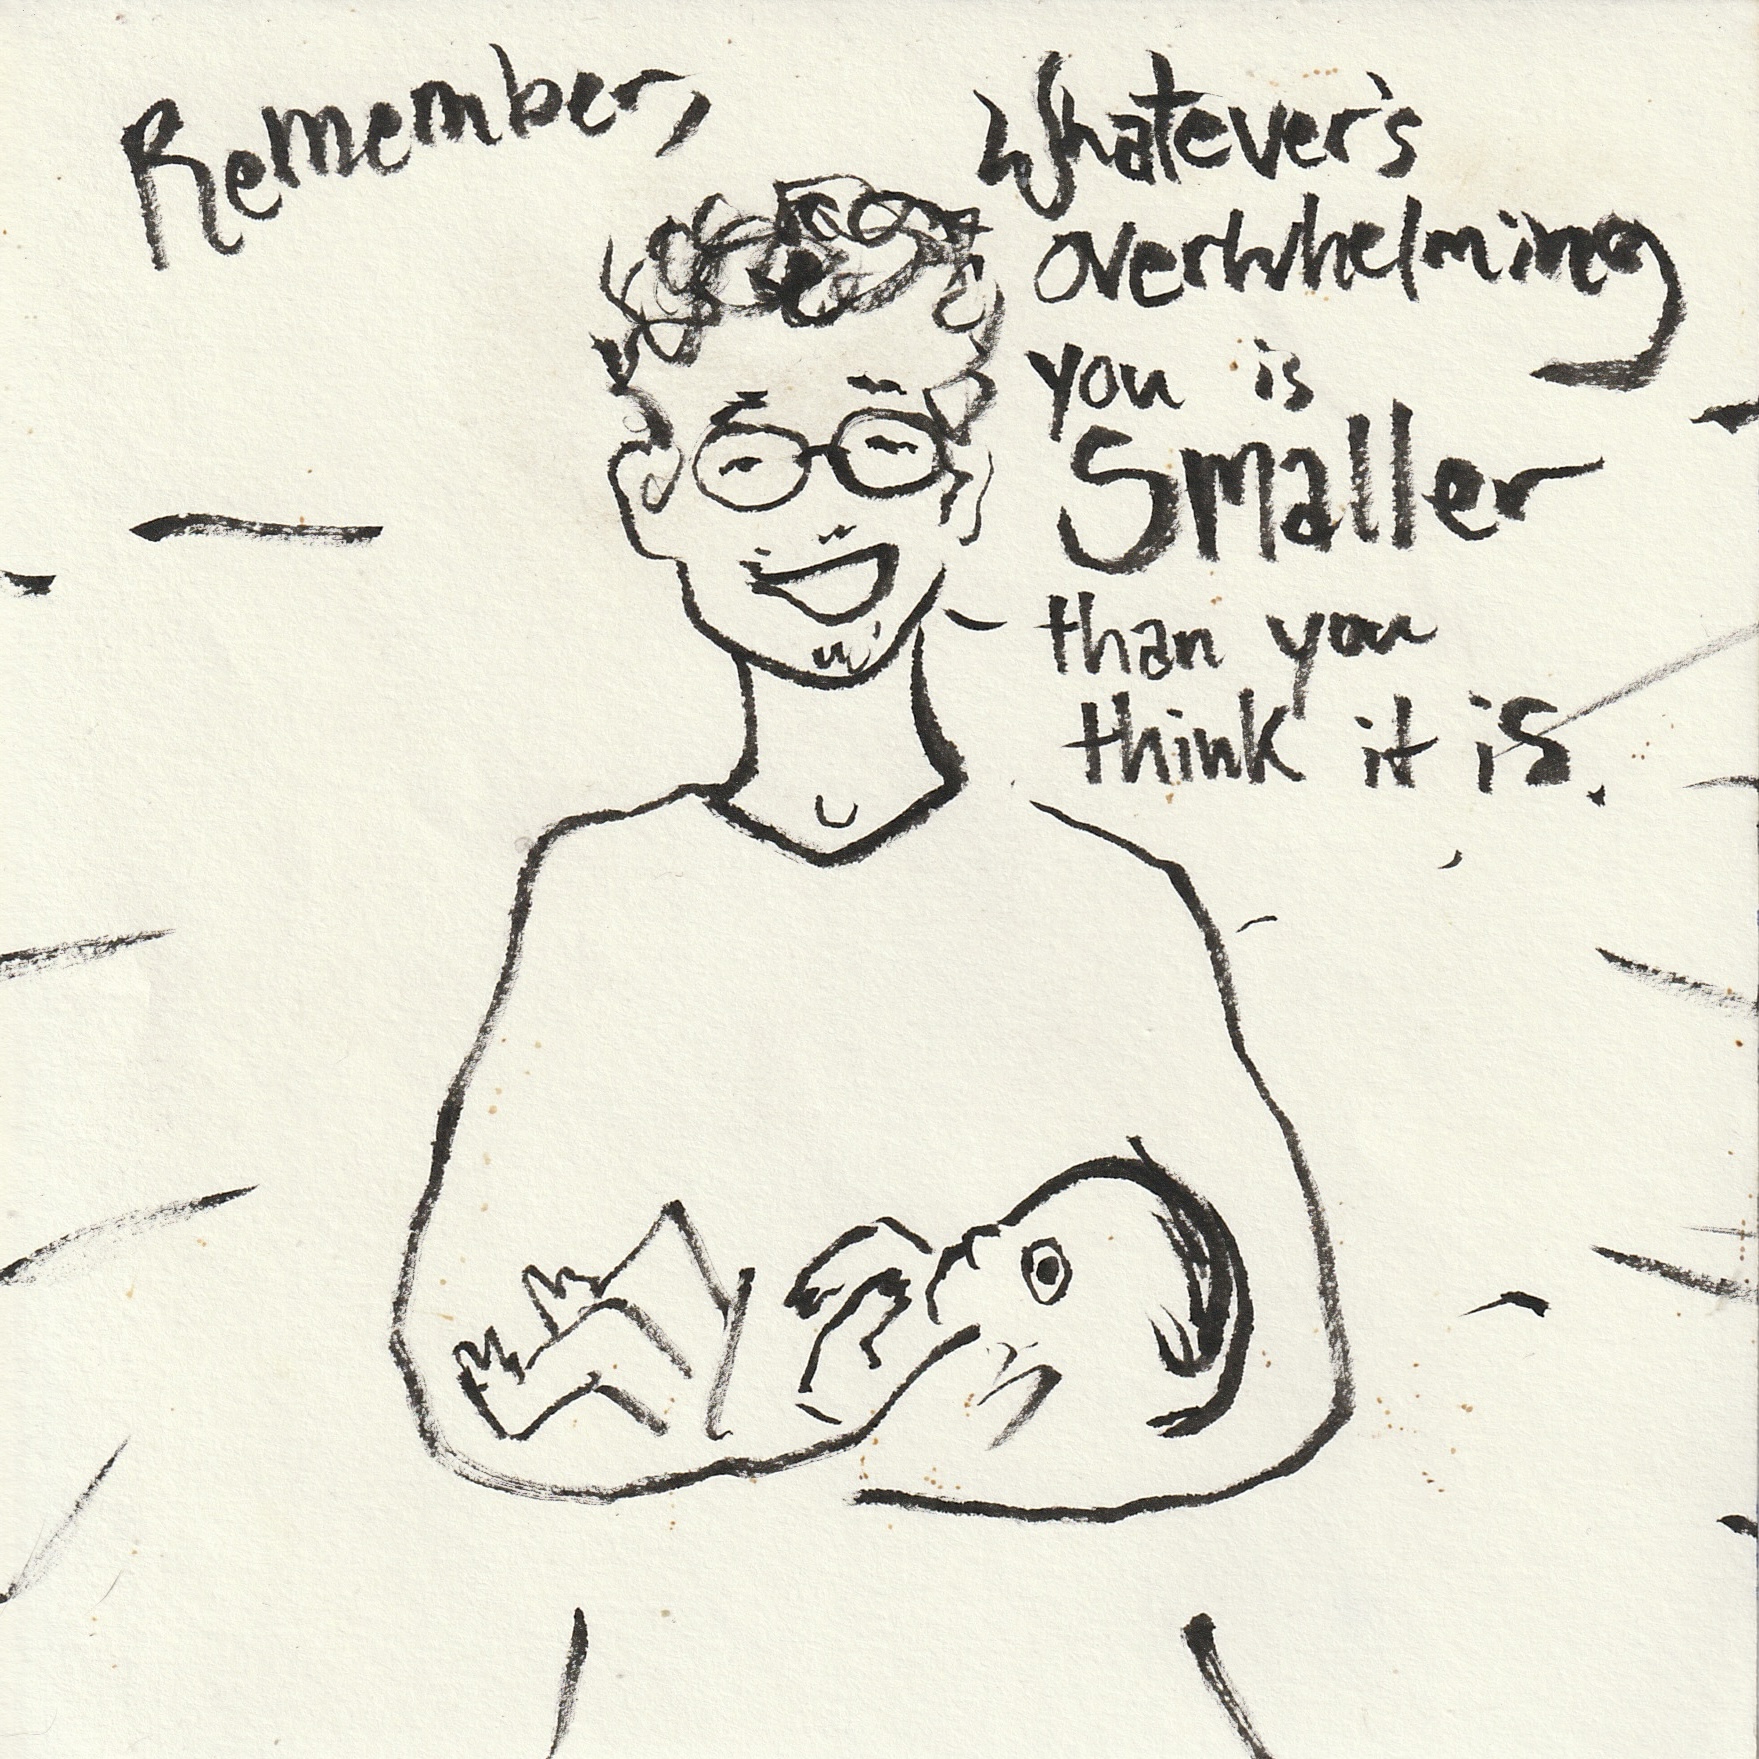 Remember,
Whatever's
overwhelming
you is
Smaller
than you
think it is.